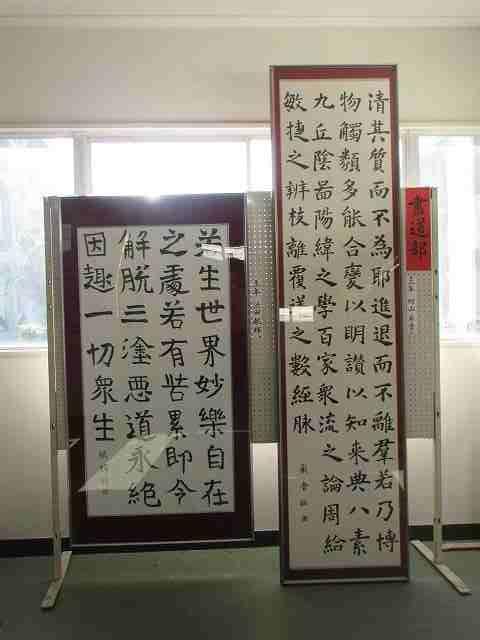 書道部
清其質而不為耶進退而不離羣若乃博
物觸類多能合甍以明讃以知来典八素
九丘陰啚陽緯之學百家衆流之論周給
敏捷之辨枝離覆逆之數經脉
若生世界妙樂自在
之處若有苦累即令
解脱三塗惡道永絶
因趣一切衆生